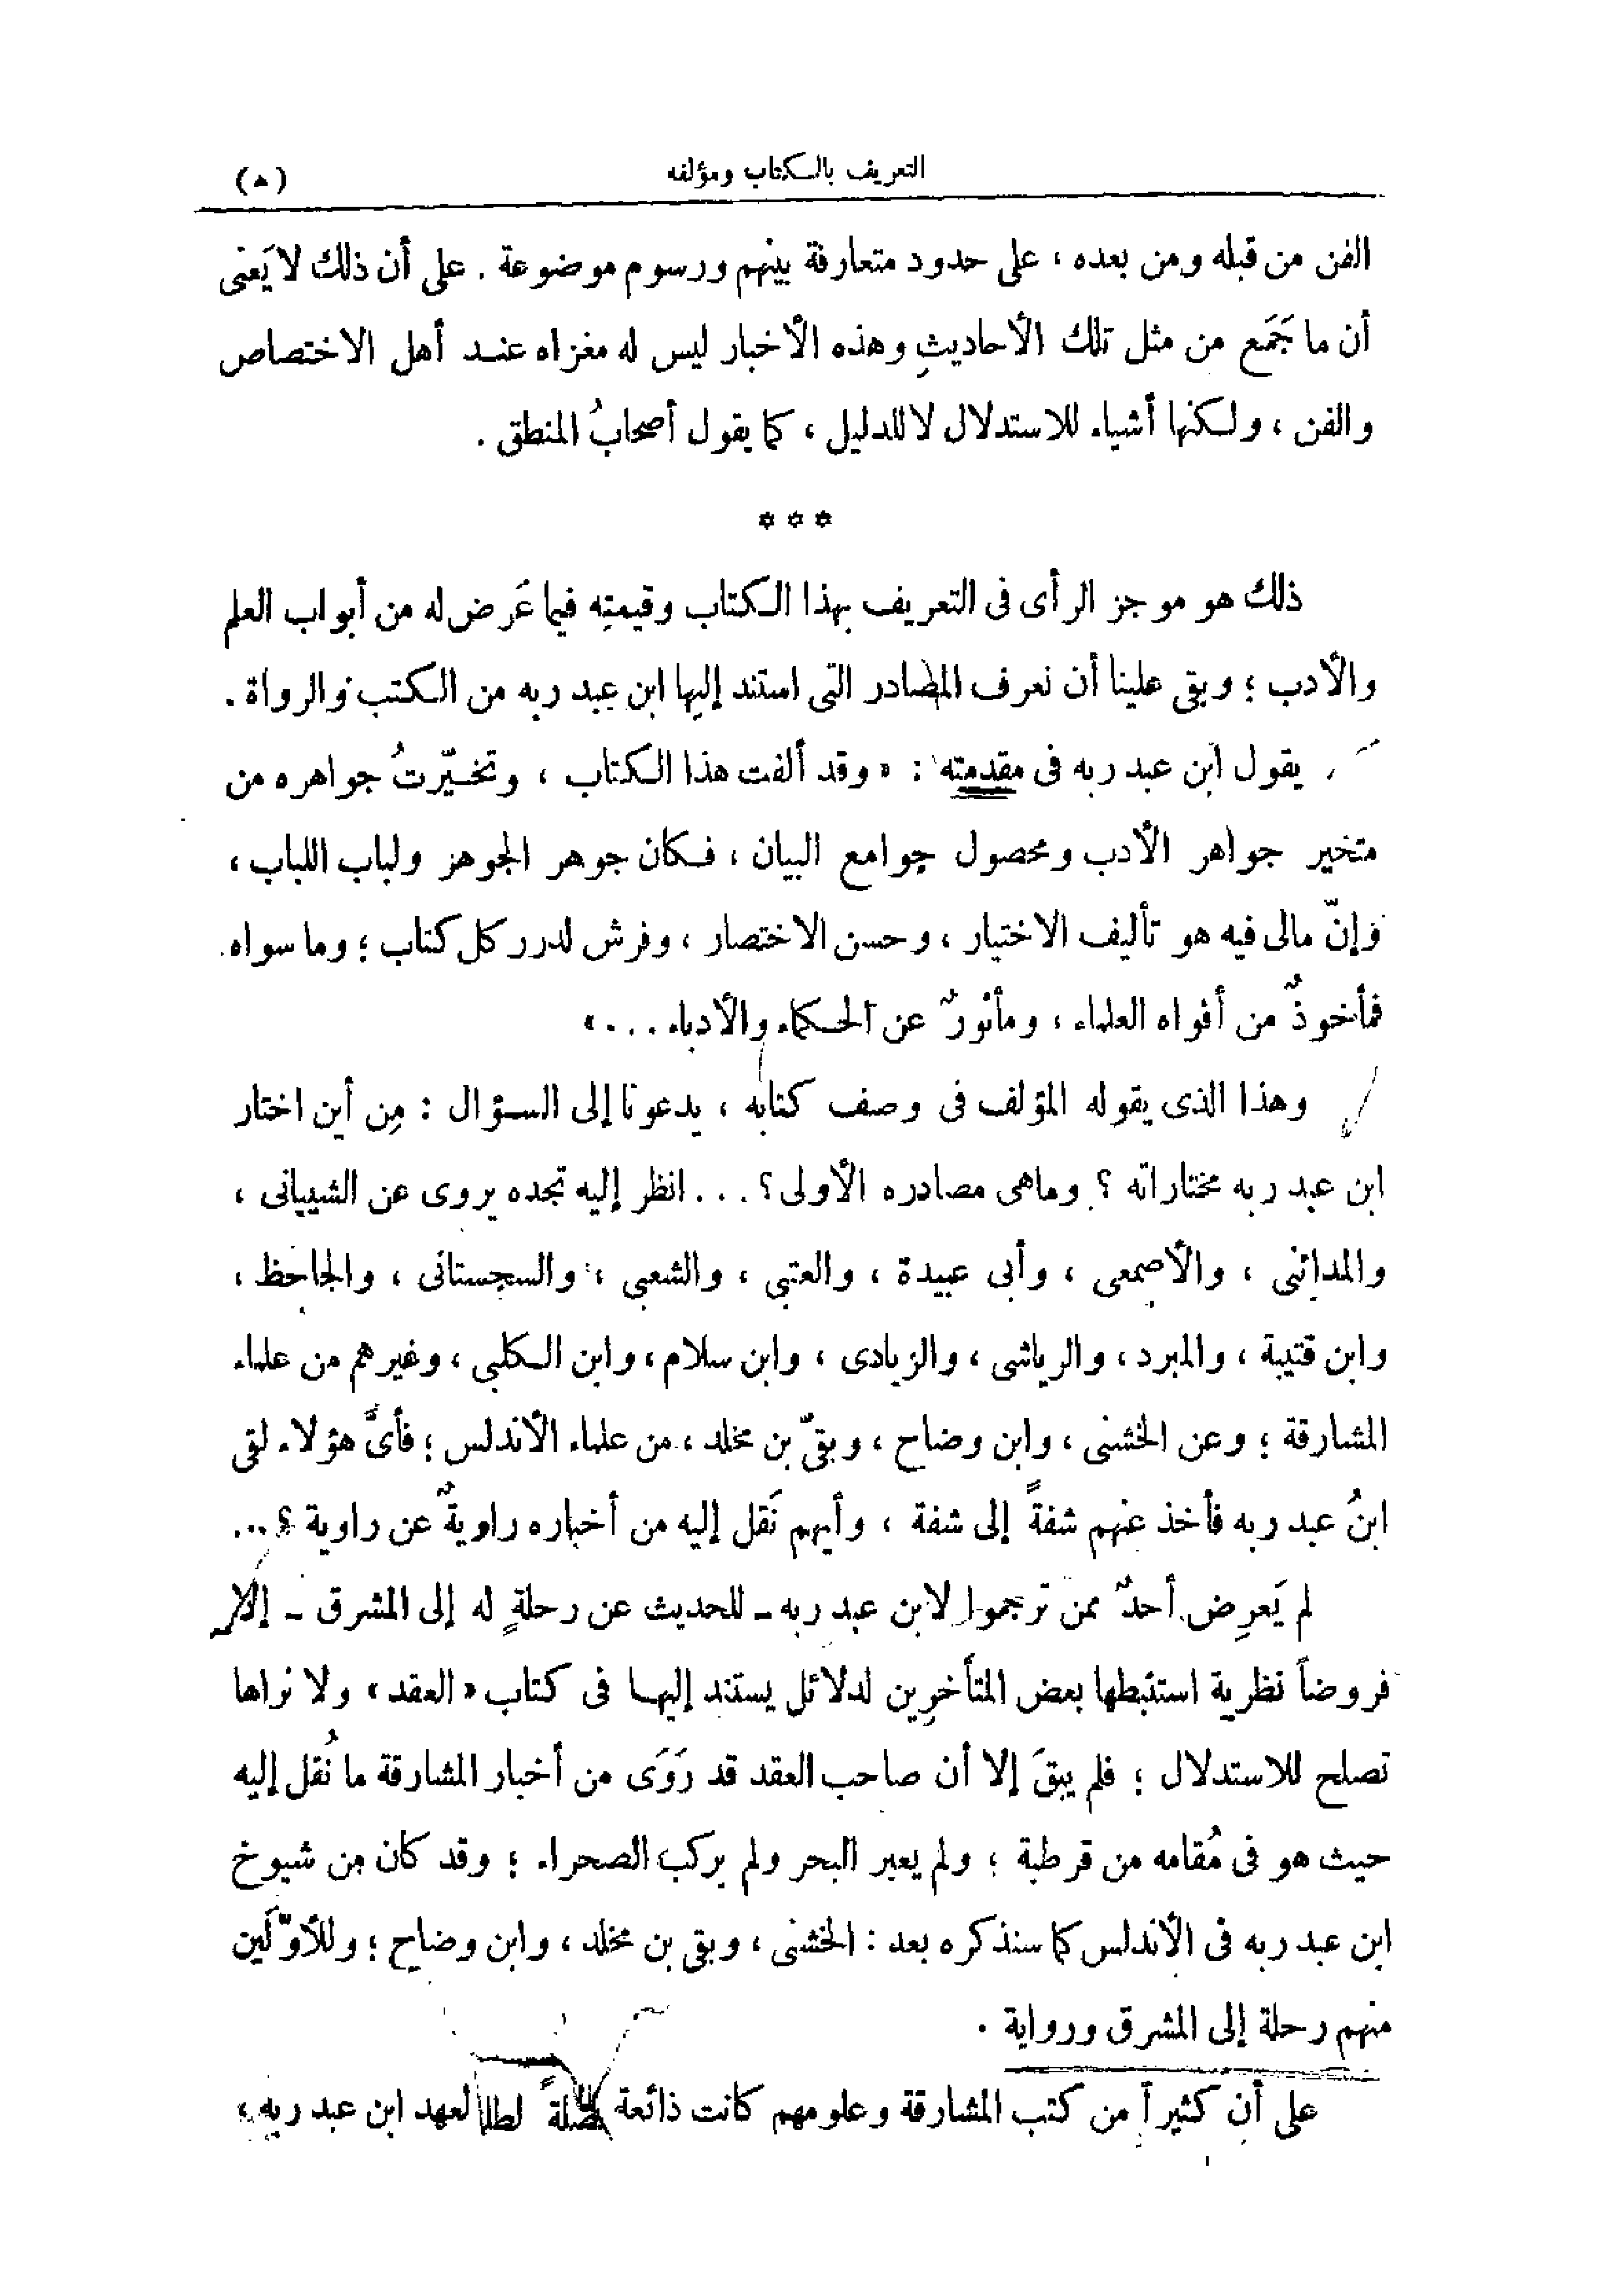 التعريف بالكتاب ومؤلفه
(ھ)
الفن من قبله ومن بعده ، على حدود متعارفة بينهم ورسوم موضوعة . على أن ذلك لا يَعنى
أن ما جَمَع من مثل تلك الأحاديثِ وهذه الأخبار ليس له مغزاه عند أهل الاختصاص
والفن ، ولكنها أشياء للاستدلال لا للدليل ، كما يقول أصحابُ المنطق .
* * *
ذلك هو موجز الرأى فى التعريف بهذا الكتاب وقيمتِه فيما عَرض له من أبواب العلم
والأدب ؛ وبقى علينا أن نعرف المصادر التى استند إليها ابن عبد ربه من الكتب والرواة .
يقول ابن عبد ربه فى مقدمته : « وقد ألفت هذا الكتاب ، وتخيّرتُ جواهره من
متخير جواهر الأدب ومحصول جوامع البيان ، فكان جوهر الجوهر ولباب اللباب ،
وإنّ مالى فيه هو تأليف الاختيار ، وحسن الاختصار ، وفرش لدرر كل كتاب ؛ وما سواه
فمأخوذٌ من أفواه العلماء ، ومأثورٌ عن الحكماء والأدباء ... »
وهذا الذى يقوله المؤلف فى وصف كتابه ، يدعونا إلى السؤال : مِن أين اختار
ابن عبد ربه مختاراته ؟ وماهى مصادره الأولى ؟ ... انظر إليه تجده يروى عن الشيبانى ،
والمدائنى ، والأصمعى ، وأبى عبيدة ، والعتبى ، والشعبى ، والسجستانى ، والجاحظ ،
وابن قتيبة ، والمبرد ، والرياشى ، والزيادى ، وابن سلام ، وابن الكلبى ، وغيرهم من علماء
المشارقة ؛ وعن الخشنى ، وابن وضاح ، وبقىّ بن مخلد ، من علماء الأندلس ؛ فأىَّ هؤلاء لقى
ابنُ عبد ربه فأخذ عنهم شفةً إلى شفة ، وأيهم نَقل إليه من أخباره راويةٌ عن راوية ؟ ...
لم يَعرِض أحدٌ ممن ترجموا لابن عبد ربه ـ للحديث عن رحلةٍ له إلى المشرق ـ إلا
فروضاً نظرية استنبطها بعض المتأخرِين لدلائل يستند إليها فى كتاب « العقد » ولا نراها
تصلح للاستدلال ؛ فلم يبقَ إلا أن صاحب العقد قد رَوَى من أخبار المشارقة ما نُقل إليه
حيث هو فى مُقامه من قرطبة ؛ ولم يعبر البحر ولم يركب الصحراء ؛ وقد كان من شيوخ
ابن عبد ربه فى الأندلس كما سنذكره بعد : الخشنى ، وبقى بن مخلد ، وابن وضاح ؛ وللأوّلَين
منهم رحلة إلى المشرق ورواية .
على أن كثيراً من كتب المشارقة وعلومهم كانت ذائعة لعهد ابن عبد ربه ،